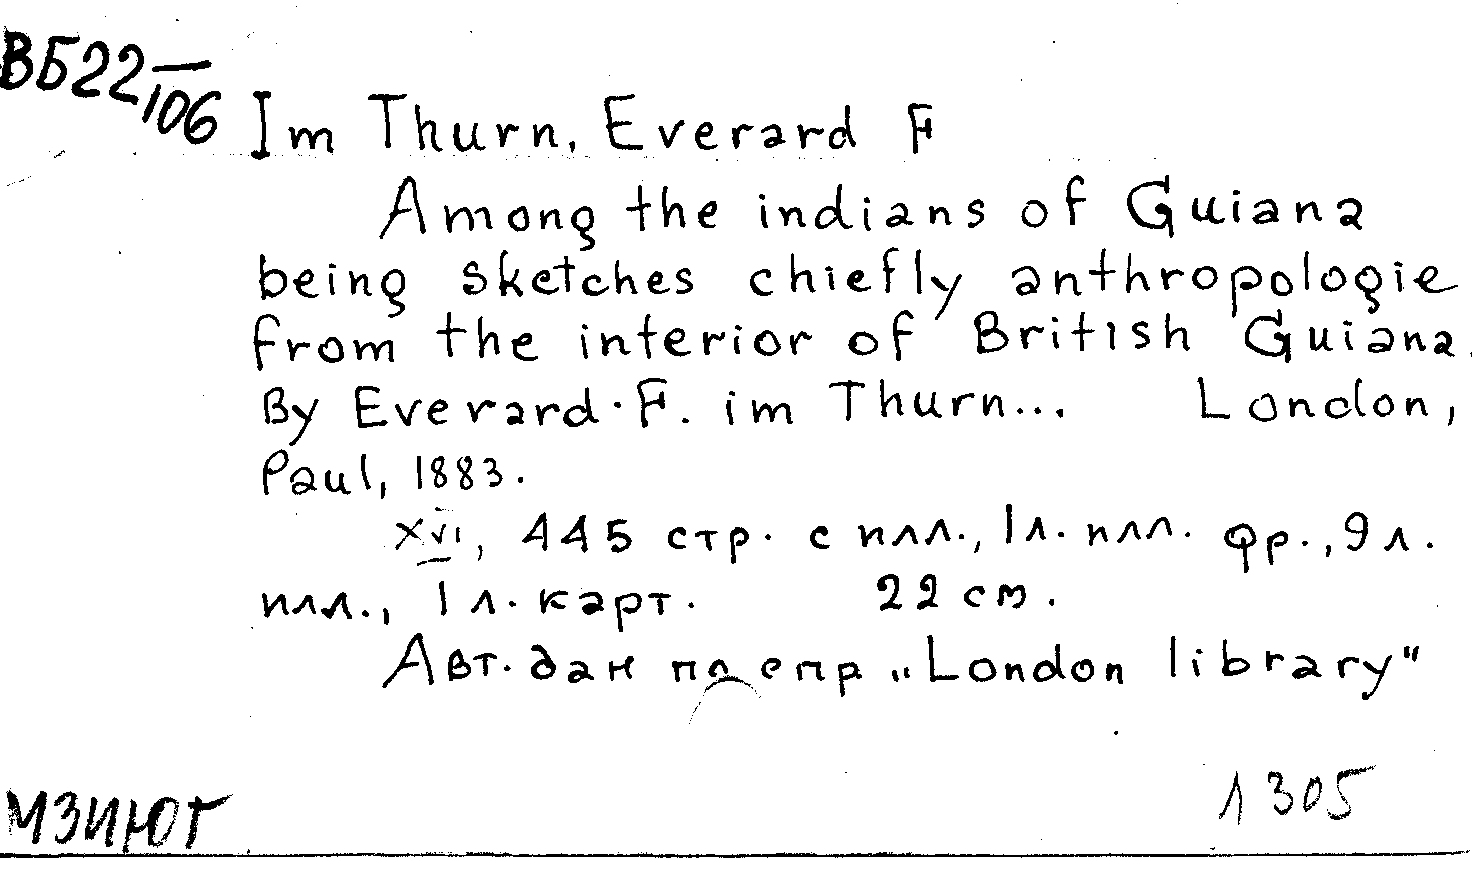 ВБ22—/106
Im Thurn, Everard F
Among the indians of Guiana
being sketches chiefly anthropologie
from the interior of British Guiana.
By Everard F. im Thurn... London,
Paul, 1883.
XVI, 445 стр. с илл., 1 л. илл. фр., 9 л.
илл., 1 л. карт. 22 см.
Авт. дан по спр „London library"
1305
МЗИЮГ